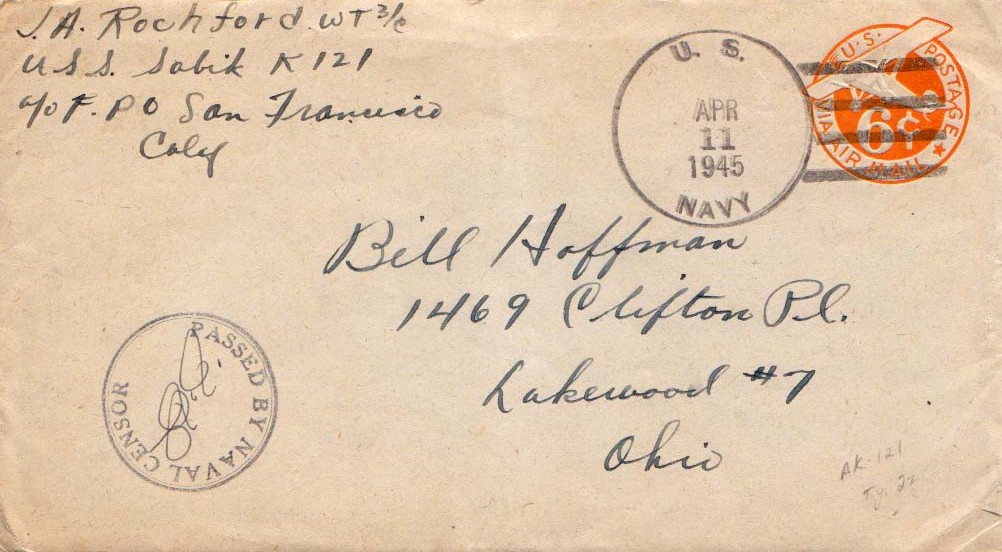 J.A. Rochford WT 3/c
U.S.S. Sabik K 121
c/o F. PO San Francisco
Calif
U. S.
APR
11
1945
NAVY
U.S. POSTAGE
6¢
VIA AIR MAIL
Bill Hoffman
1469 Clifton Pl.
Lakewood #7
Ohio
PASSED BY NAVAL CENSOR
AK-121